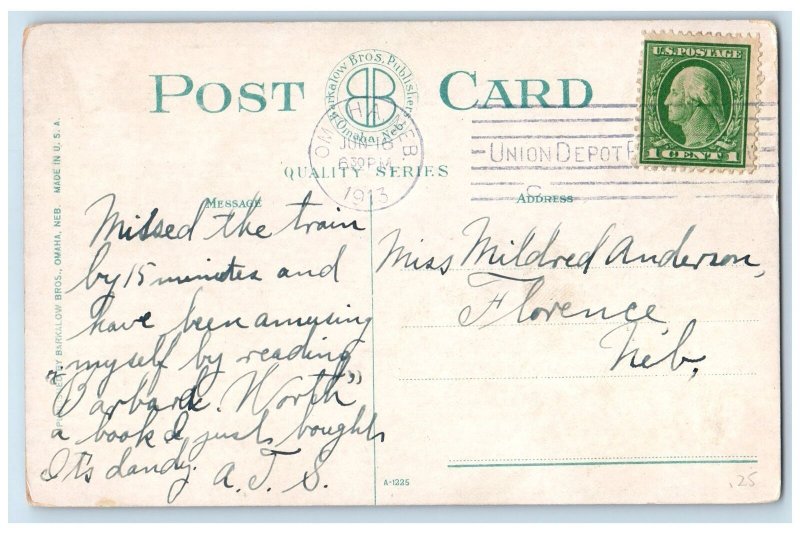 POST CARD
Barkalow Bro's. Publishers
BB
Omaha, Neb.
QUALITY SERIES
U.S. POSTAGE
1 CENT 1
OMAHA NEB.
JUN 18
630 P.M.
1913
UNION DEPOT
MESSAGE
ADDRESS
Missed the train
by 15 minutes and
have been amusing
myself by reading
"Barbara Worth"
a book I just bought
It's dandy.
A. J. S.
Miss Mildred Anderson,
Florence
Neb,
BY BARKALOW BROS., OMAHA, NEB. MADE IN U.S.A.
A-1225
.25